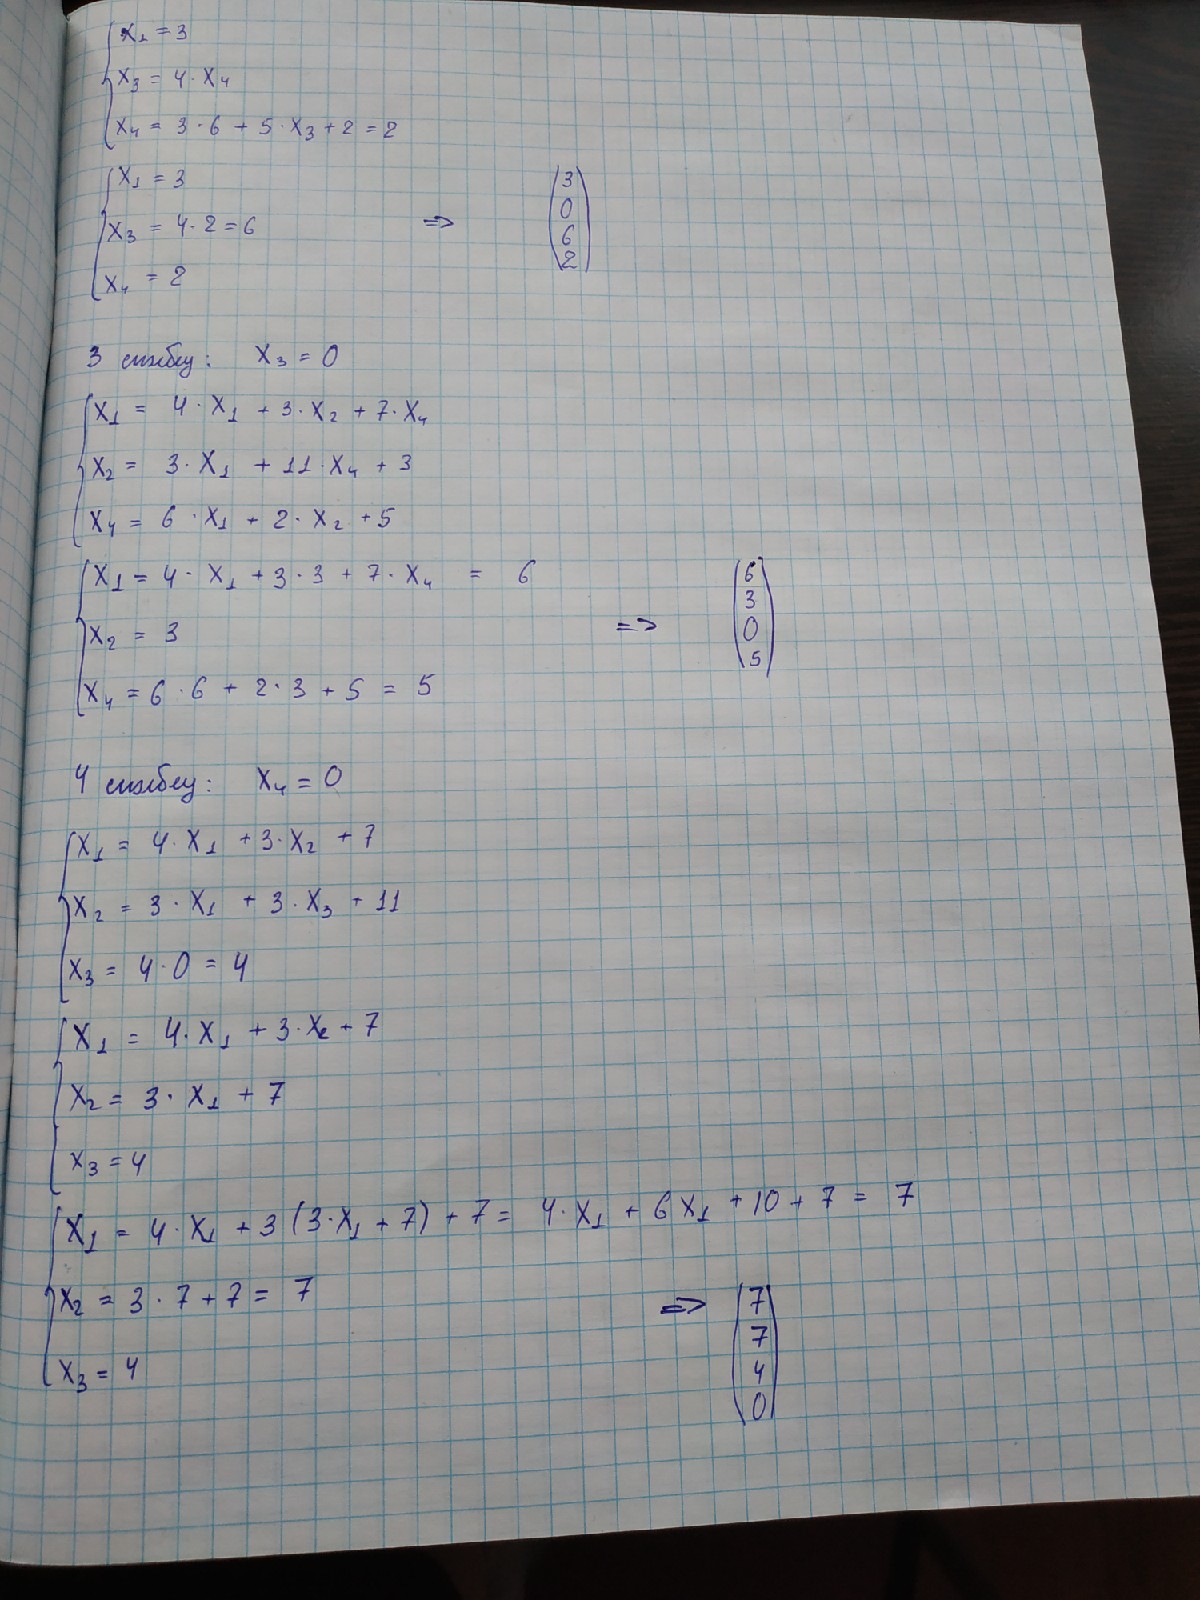 x₁ = 3
x₃ = 4 · x₄
x₄ = 3 · 6 + 5 · x₃ + 2 = 2
x₁ = 3
x₃ = 4 · 2 = 6
x₄ = 2
=>
3
0
6
2
3 столбец: x₃ = 0
x₁ = 4 · x₁ + 3 · x₂ + 7 · x₄
x₂ = 3 · x₁ + 11 · x₄ + 3
x₄ = 6 · x₁ + 2 · x₂ + 5
x₁ = 4 · x₁ + 3 · 3 + 7 · x₄ = 6
x₂ = 3
x₄ = 6 · 6 + 2 · 3 + 5 = 5
=>
6
3
0
5
4 столбец: x₄ = 0
x₁ = 4 · x₁ + 3 · x₂ + 7
x₂ = 3 · x₁ + 3 · x₃ + 11
x₃ = 4 · 0 = 4
x₁ = 4 · x₁ + 3 · x₂ + 7
x₂ = 3 · x₁ + 7
x₃ = 4
x₁ = 4 · x₁ + 3 (3 · x₁ + 7) + 7 = 4 · x₁ + 6 x₁ + 10 + 7 = 7
x₂ = 3 · 7 + 7 = 7
x₃ = 4
=>
7
7
4
0